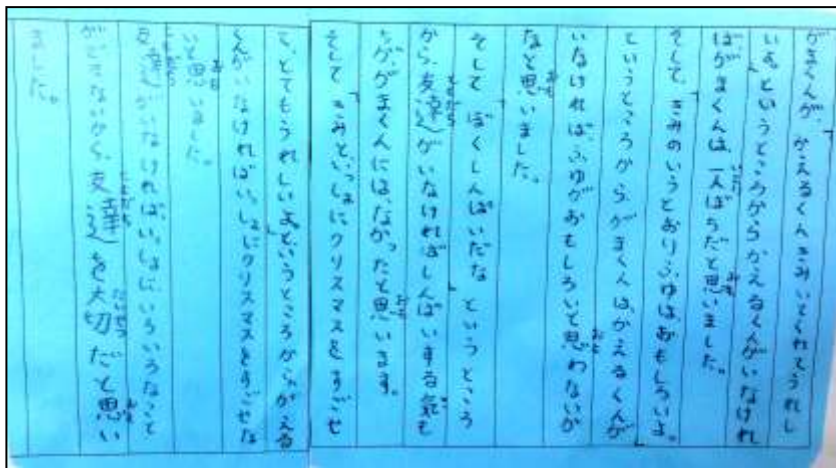 がまくんが、「かえるくんきみいてくれてうれし
いよ。」というところからかえるくんがいなけれ
ば、がまくんは、一人ぼっちだと思いました。
そして、「きみのいうとおりふゆは、おもしろいよ。」
というところから、がまくんは、かえるくんが
いなければ、ふゆがおもしろいと思わないか
なと思いました。
そして「ぼくしんぱいだな」というところ
から、友達がいなければしんぱいする気も
ちが、がまくんには、なかったと思います。
そして「きみといっしょにクリスマスをすごせ
て、とてもうれしいよ。」というところから、かえる
くんがいなければいっしょにクリスマスをすごせな
いと思いました。
友達がいなければ、いっしょに、いろいろなこと
ができないから、友達を大切だと思い
ました。